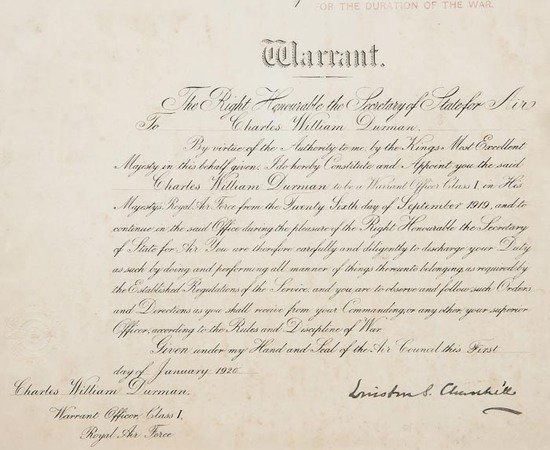 FOR THE DURATION OF THE WAR.
Warrant.
The Right Honourable the Secretary of State for Air
To Charles William Durman.
By virtue of the Authority to me, by the Kings Most Excellent
Majesty in this behalf given, I do hereby Constitute and Appoint you the said
Charles William Durman to be a Warrant Officer Class I on His
Majestys Royal Air Force from the Twenty Sixth day of September 1919, and to
continue in the said Office during the pleasure of the Right Honourable the Secretary
of State for Air. You are therefore carefully and diligently to discharge your Duty
as such by doing and performing all manner of things thereunto belonging, as required by
the Established Regulations of the Service, and you are to observe and follow such Orders
and Directions as you shall receive from your Commanding, or any other, your superior
Officer, according to the Rules and Discipline of War.
Given under my Hand and Seal of the Air Council this First
day of January 1920.
Charles William Durman.
Winston S. Churchill
Warrant Officer, Class I,
Royal Air Force